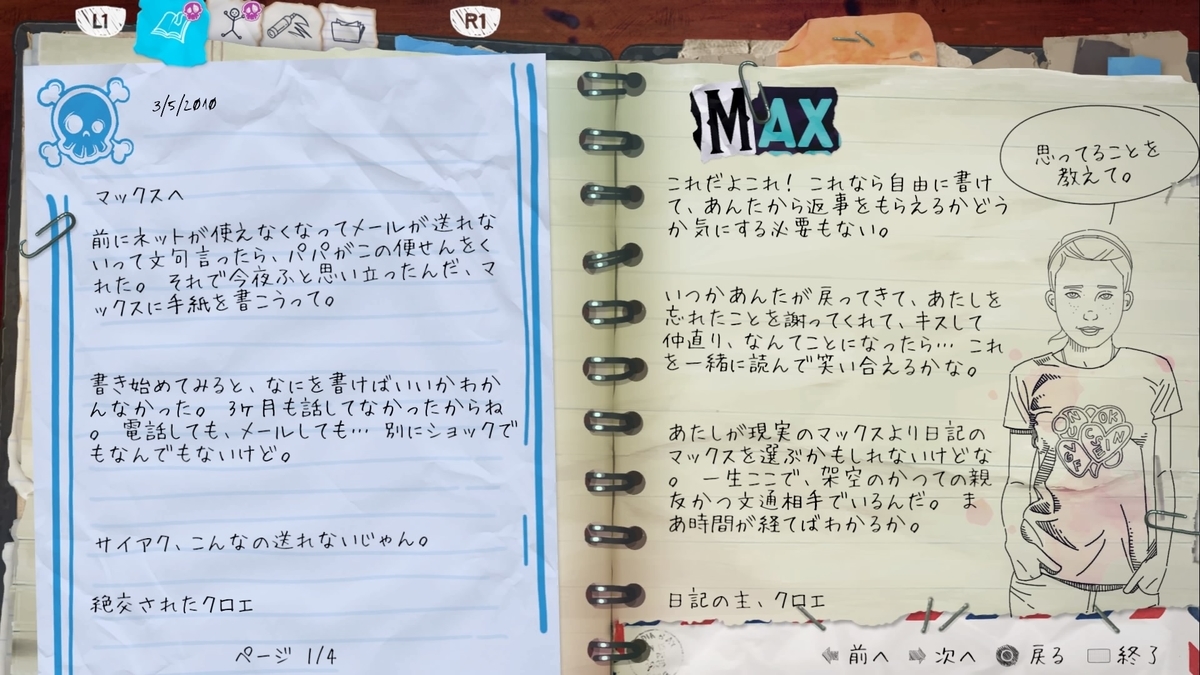 L1
R1
3/5/2010
マックスへ
前にネットが使えなくなってメールが送れな
いって文句言ったら、パパがこの便せんをく
れた。 それで今夜ふと思い立ったんだ、マ
ックスに手紙を書こうって。
書き始めてみると、なにを書けばいいかわか
んなかった。 3ヶ月も話してなかったからね
。 電話しても、メールしても… 別にショックで
もなんでもないけど。
サイアク、こんなの送れないじゃん。
絶交されたクロエ
ページ 1/4
MAX
これだよこれ! これなら自由に書け
て、あんたから返事をもらえるかどう
か気にする必要もない。
いつかあんたが戻ってきて、あたしを
忘れたことを謝ってくれて、キスして
仲直り、なんてことになったら… これ
を一緒に読んで笑い合えるかな。
あたしが現実のマックスより日記の
マックスを選ぶかもしれないけどな
。 一生ここで、架空のかつての親
友かつ文通相手でいるんだ。 ま
あ時間が経てばわかるか。
日記の主、クロエ
思ってることを
教えて。
前へ 次へ 戻る 終了